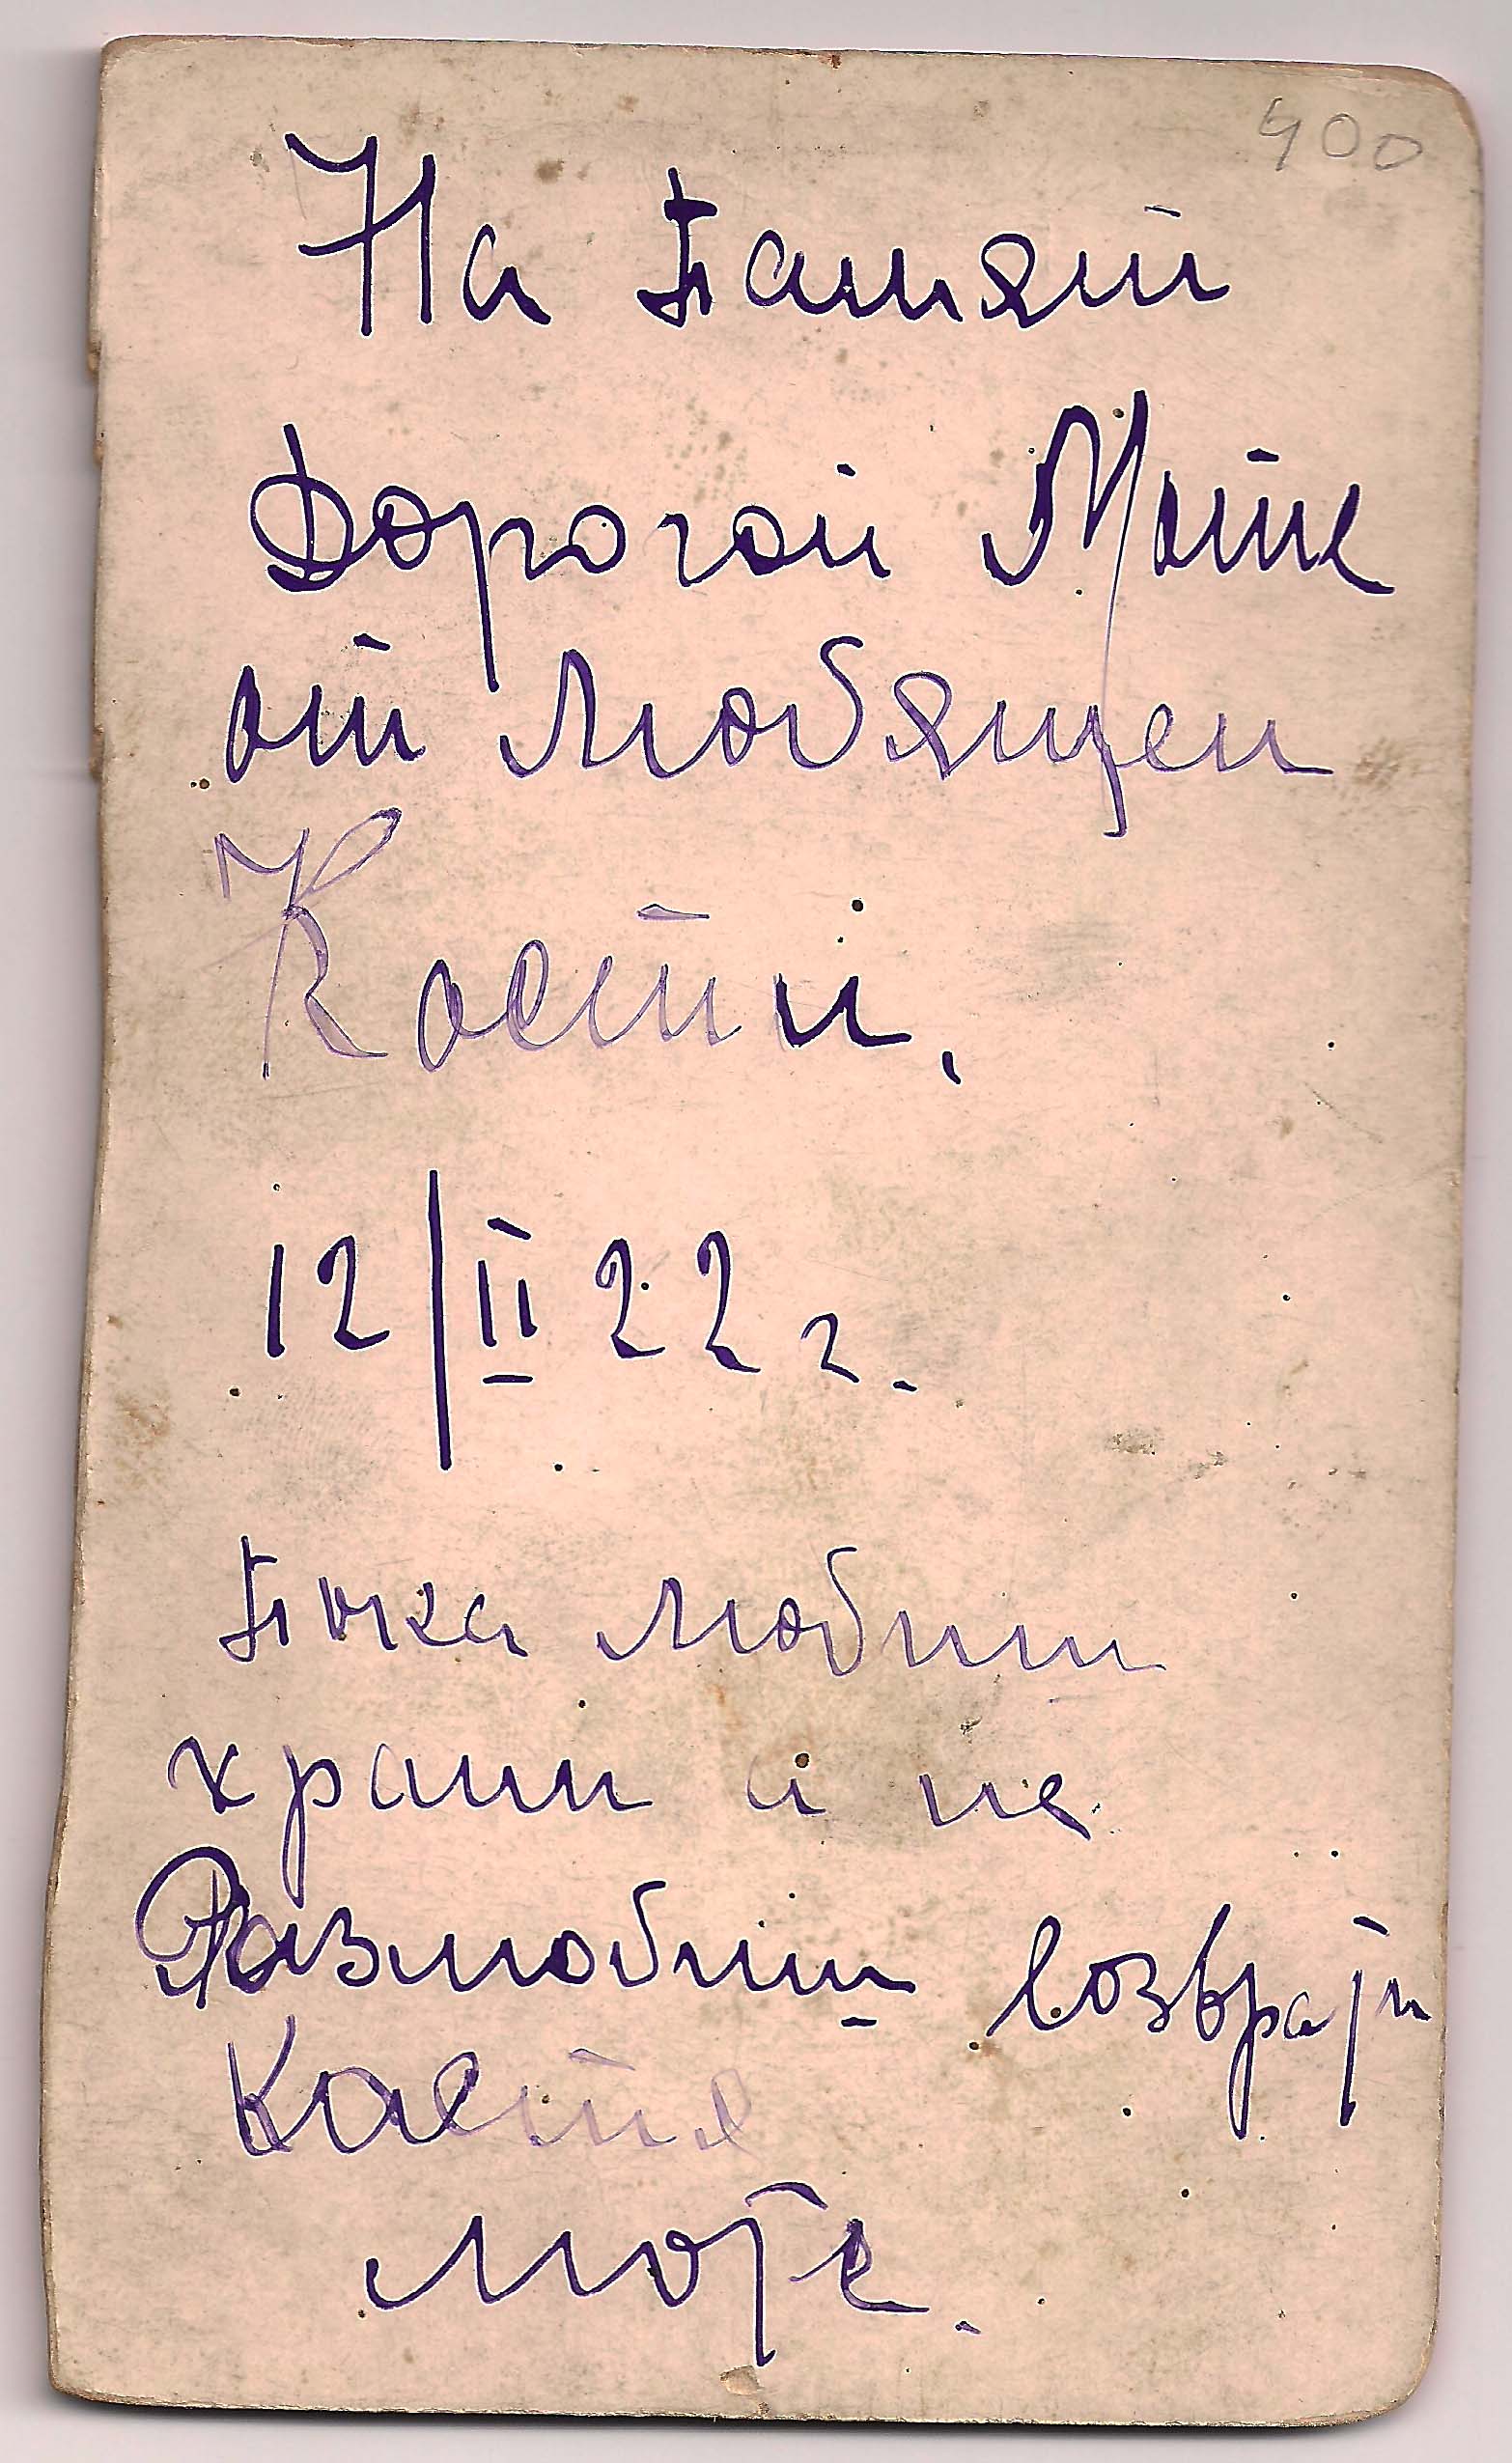 400
На Памят
Дорогой Моте
от Любящей
Кости,
12/II 22 г.
Пока любиш
храни а не
Разлюбиш возврати
Косте